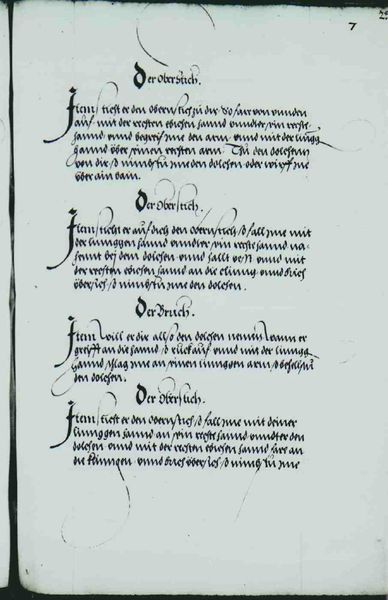 7
Der oberstich.
Item sticht er den obernstich zu dir So far von unnden
auf mit der rechten ebichen hannd unndter sein rechte
hannd unnd begreif ime den arm unnd mit der lingg
hannd über seinen rechten arm Thu den dolchen
von dir so nimbstu ime den dolchen oder wirff ine
über ain barn.
Der oberstich.
Item sticht er auf dich den obernstich so fall ime mit
der linnggen hannd unndter sein rechte hannd na-
hennt bej dem dolchen unnd halt vest unnd mit
der rechten ebichen hannd an die clinng unnd brich
übersich so nimbstu ime den dolchen.
Der Bruch.
Item Will er dir also den dolchen nemen Wann er
greifft an die hannd so ruck auf unnd mit der lingg
hannd schlag ine an seinen linngten arm so behelstu
den dolchen.
Der oberstich.
Item sticht er den obernstich so fall ime mit deiner
linnggten hannd an sein rechte hannd unndter den
dolchen unnd mit der rechten ebichen hannd fars an
die klinngen unnd brich übersich so nimbstu ime